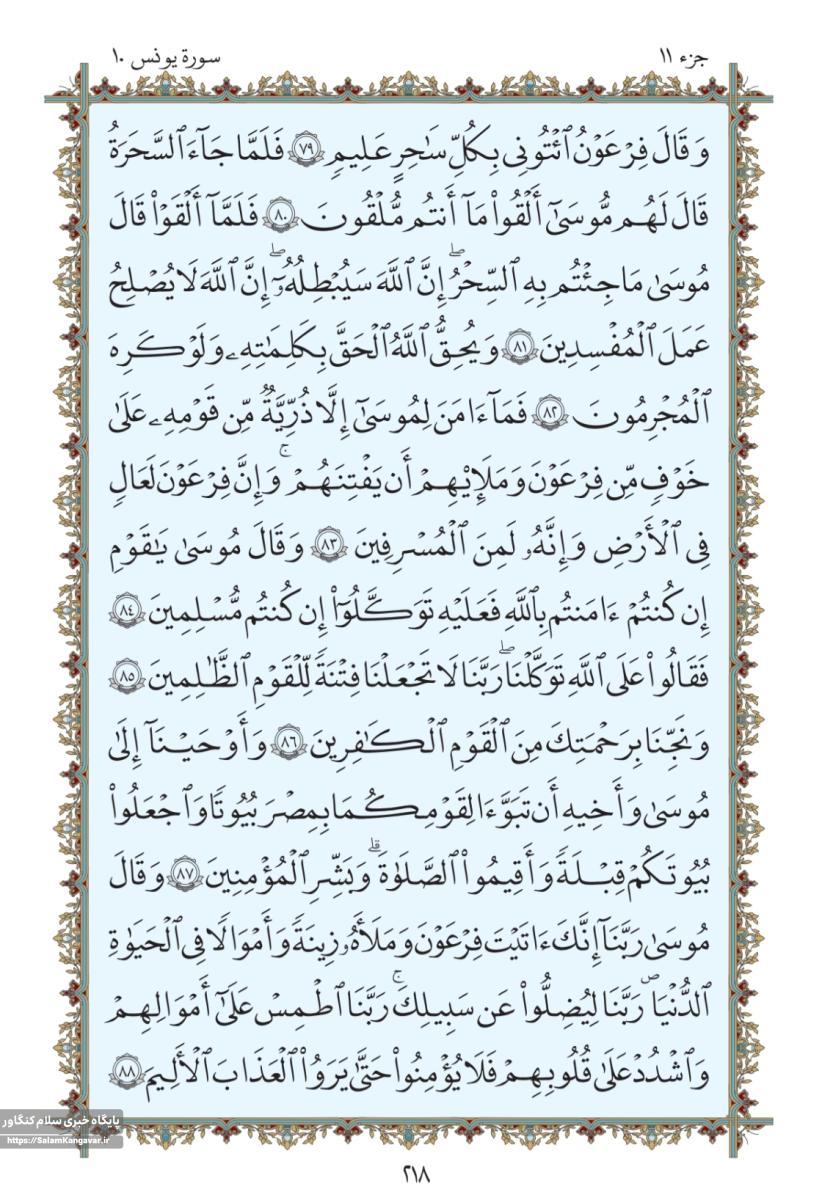 جزء ۱۱
سورة يونس ۱۰
وَقَالَ فِرْعَوْنُ ٱئْتُونِى بِكُلِّ سَٰحِرٍ عَلِيمٍ ۝٧٩ فَلَمَّا جَآءَ ٱلسَّحَرَةُ
قَالَ لَهُم مُّوسَىٰٓ أَلْقُوا۟ مَآ أَنتُم مُّلْقُونَ ۝٨٠ فَلَمَّآ أَلْقَوْا۟ قَالَ
مُوسَىٰ مَا جِئْتُم بِهِ ٱلسِّحْرُ ۖ إِنَّ ٱللَّهَ سَيُبْطِلُهُۥٓ ۖ إِنَّ ٱللَّهَ لَا يُصْلِحُ
عَمَلَ ٱلْمُفْسِدِينَ ۝٨١ وَيُحِقُّ ٱللَّهُ ٱلْحَقَّ بِكَلِمَٰتِهِۦ وَلَوْ كَرِهَ
ٱلْمُجْرِمُونَ ۝٨٢ فَمَآ ءَامَنَ لِمُوسَىٰٓ إِلَّا ذُرِّيَّةٌ مِّن قَوْمِهِۦ عَلَىٰ
خَوْفٍ مِّن فِرْعَوْنَ وَمَلَإِي۟هِمْ أَن يَفْتِنَهُمْ ۚ وَإِنَّ فِرْعَوْنَ لَعَالٍ
فِى ٱلْأَرْضِ وَإِنَّهُۥ لَمِنَ ٱلْمُسْرِفِينَ ۝٨٣ وَقَالَ مُوسَىٰ يَٰقَوْمِ
إِن كُنتُمْ ءَامَنتُم بِٱللَّهِ فَعَلَيْهِ تَوَكَّلُوٓا۟ إِن كُنتُم مُّسْلِمِينَ ۝٨٤
فَقَالُوا۟ عَلَى ٱللَّهِ تَوَكَّلْنَا ۖ رَبَّنَا لَا تَجْعَلْنَا فِتْنَةً لِّلْقَوْمِ ٱلظَّٰلِمِينَ ۝٨٥
وَنَجِّنَا بِرَحْمَتِكَ مِنَ ٱلْقَوْمِ ٱلْكَٰفِرِينَ ۝٨٦ وَأَوْحَيْنَآ إِلَىٰ
مُوسَىٰ وَأَخِيهِ أَن تَبَوَّءَا لِقَوْمِكُمَا بِمِصْرَ بُيُوتًا وَٱجْعَلُوا۟
بُيُوتَكُمْ قِبْلَةً وَأَقِيمُوا۟ ٱلصَّلَوٰةَ ۗ وَبَشِّرِ ٱلْمُؤْمِنِينَ ۝٨٧ وَقَالَ
مُوسَىٰ رَبَّنَآ إِنَّكَ ءَاتَيْتَ فِرْعَوْنَ وَمَلَأَهُۥ زِينَةً وَأَمْوَٰلًا فِى ٱلْحَيَوٰةِ
ٱلدُّنْيَا ۖ رَبَّنَا لِيُضِلُّوا۟ عَن سَبِيلِكَ ۖ رَبَّنَا ٱطْمِسْ عَلَىٰٓ أَمْوَٰلِهِمْ
وَٱشْدُدْ عَلَىٰ قُلُوبِهِمْ فَلَا يُؤْمِنُوا۟ حَتَّىٰ يَرَوُا۟ ٱلْعَذَابَ ٱلْأَلِيمَ ۝٨٨
پایگاه خبری سلام کنگاور
https://SalamKangavar.ir
۲۱۸